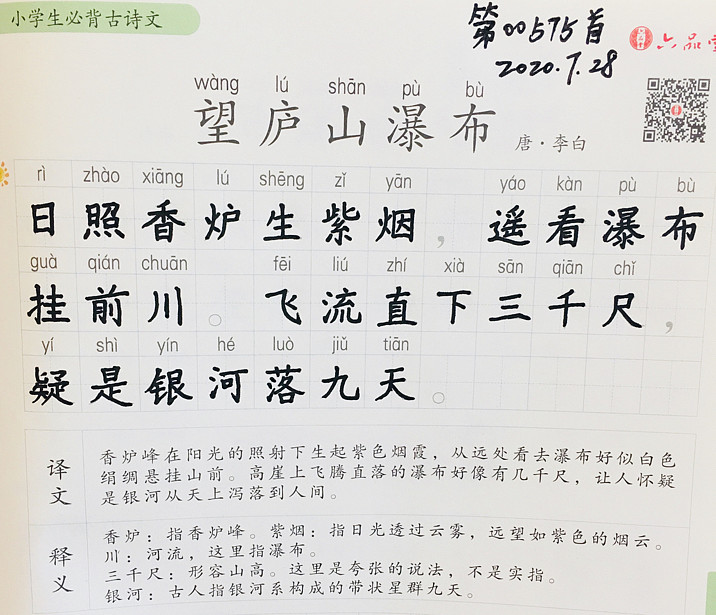 小学生必背古诗文
第00575首
2020.7.28
六品堂
wàng lú shān pù bù
望庐山瀑布
唐·李白
rì zhào xiāng lú shēng zǐ yān yáo kàn pù bù
日照香炉生紫烟，遥看瀑布
guà qián chuān fēi liú zhí xià sān qiān chǐ
挂前川。飞流直下三千尺，
yí shì yín hé luò jiǔ tiān
疑是银河落九天。
译文
香炉峰在阳光的照射下生起紫色烟霞，从远处看去瀑布好似白色
绢绸悬挂山前。高崖上飞腾直落的瀑布好像有几千尺，让人怀疑
是银河从天上泻落到人间。
释义
香炉：指香炉峰。紫烟：指日光透过云雾，远望如紫色的烟云。
川：河流，这里指瀑布。
三千尺：形容山高。这里是夸张的说法，不是实指。
银河：古人指银河系构成的带状星群九天。